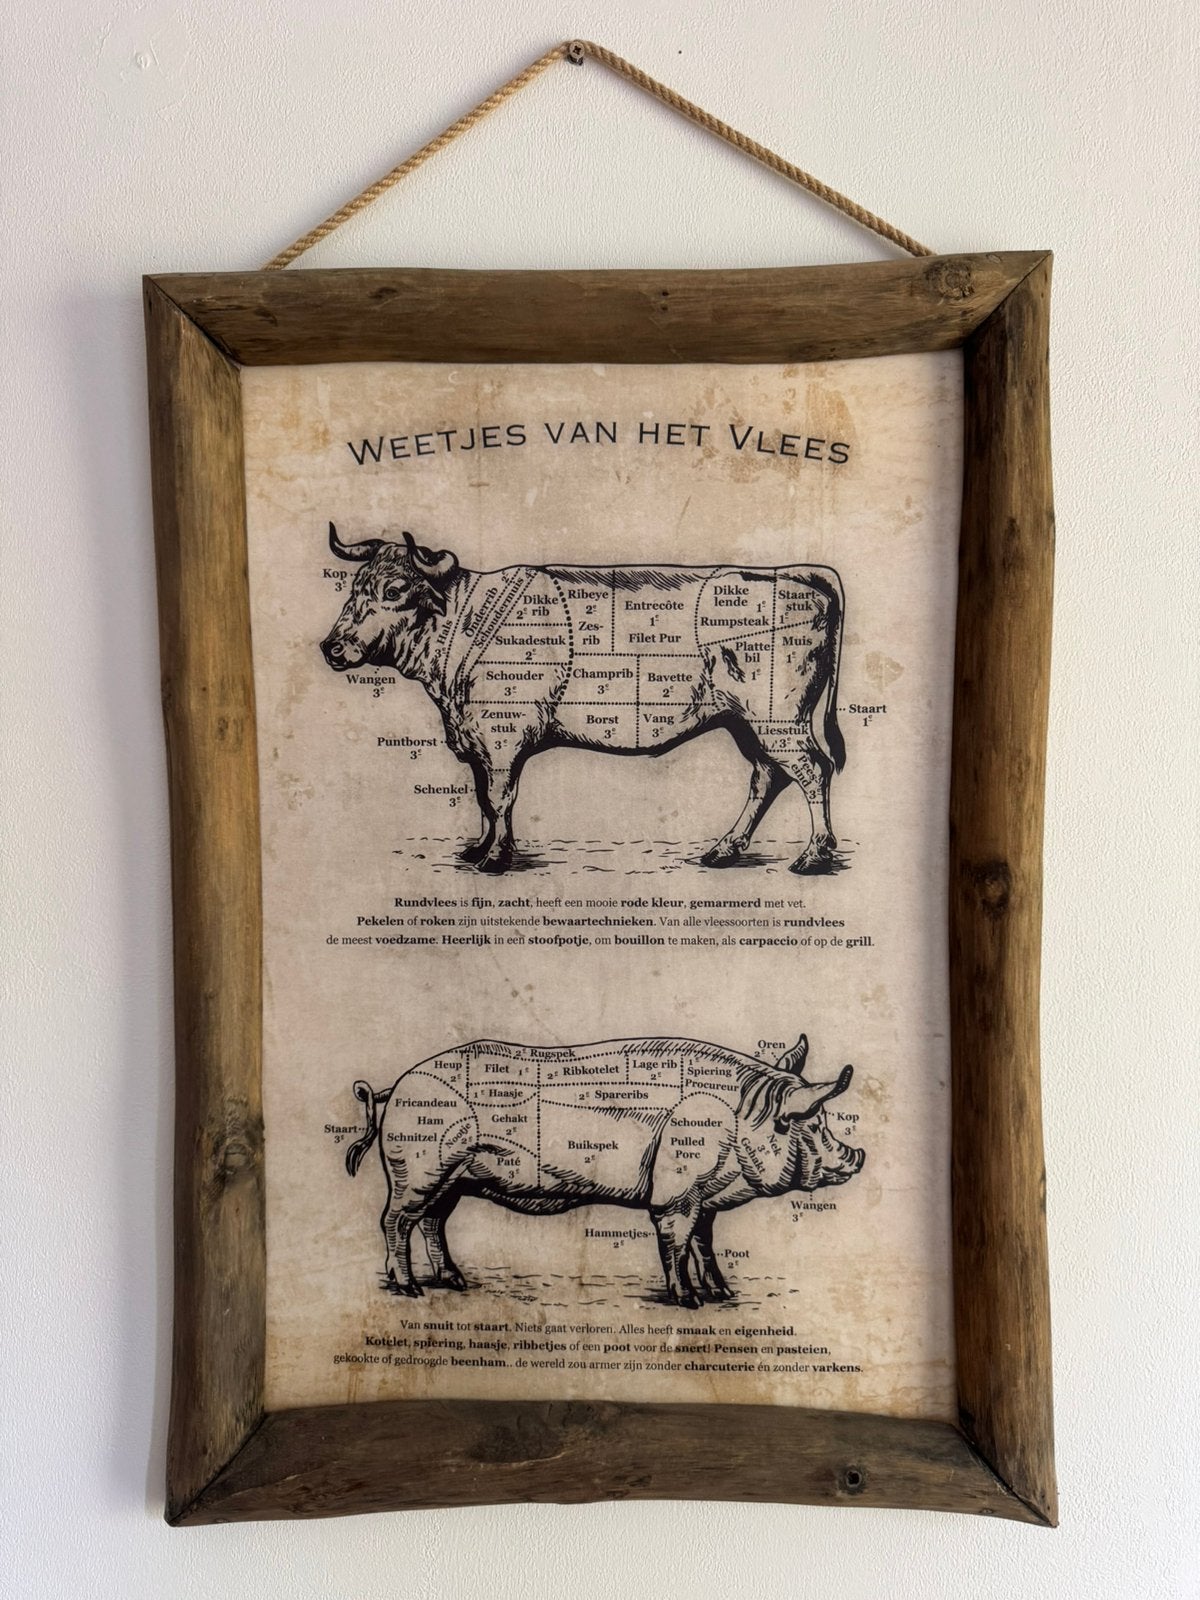 WEETJES VAN HET VLEES
Kop
3e
Wangen
3e
Hals
3e
Onderrib
2e
Schoudermuis
Dikke
2e rib
Ribeye
2e
Zes-
rib
Entrecôte
1e
Filet Pur
Dikke
lende 1e
Rumpsteak
Staart-
stuk
1e
Sukadestuk
2e
Platte
bil
1e
Muis
1e
Schouder
3e
Champrib
3e
Bavette
2e
Staart
1e
Zenuw-
stuk
3e
Borst
3e
Vang
3e
Liesstuk
3e
Puntborst
3e
Pees-
eind
3e
Schenkel
3e
Rundvlees is fijn, zacht, heeft een mooie rode kleur, gemarmerd met vet.
Pekelen of roken zijn uitstekende bewaartechnieken. Van alle vleessoorten is rundvlees
de meest voedzame. Heerlijk in een stoofpotje, om bouillon te maken, als carpaccio of op de grill.
Oren
2e
2e Rugspek
Heup
2e
Filet 1e
2e Ribkotelet
Lage rib
2e
1e
Spiering
Procureur
1e Haasje
2e Spareribs
Fricandeau
Ham
Schnitzel
1e
Nootje
2e
Gehakt
2e
Buikspek
2e
Schouder
Pulled
Porc
2e
Nek
3e
Gehakt
Kop
3e
Staart
3e
Paté
3e
Wangen
3e
Hammetjes
2e
Poot
2e
Van snuit tot staart. Niets gaat verloren. Alles heeft smaak en eigenheid.
Kotelet, spiering, haasje, ribbetjes of een poot voor de snert! Pensen en pasteien,
gekookte of gedroogde beenham.. de wereld zou armer zijn zonder charcuterie én zonder varkens.